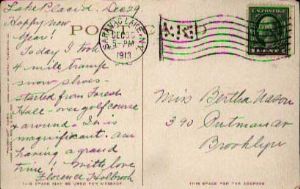 Lake Placid. Dec 29.
Happy new
Year!
Today I took
4 mile tramp
snow shoes -
started from Forest
Hall over golf course
+ around. It is
magnificent. Am
having a grand
time! With love
Florence Holbrook
PO
SARANAC LAKE, N.Y.
DEC 30
5-PM
1913
Miss Bertha Nason
390 Putnam Av
Brooklyn
THIS SPACE MAY BE USED FOR MESSAGE
THIS SPACE FOR THE ADDRESS